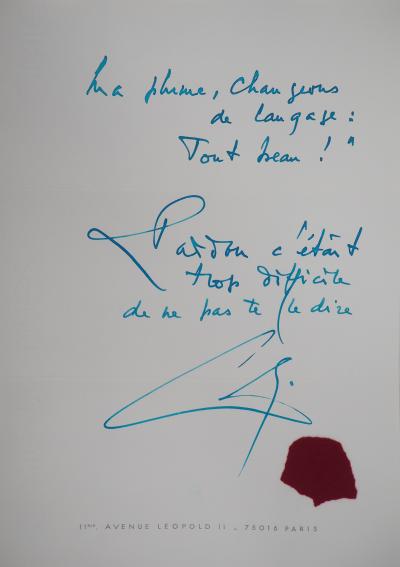 Ma plume, changeons
de langage :
Tout beau ! "
Pardon c'était
trop difficile
de ne pas te le dire
11BIS, AVENUE LEOPOLD II _ 75016 PARIS